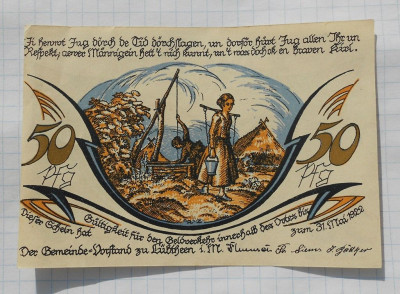 Ji hewwt Jug dörch de Tid dörchslagen, un dorför hürt Jug allen Ihr un
Respekt, wer Männigein hett't nich kunnt, un't was doch ok en braven Kirl.
50 Pfg
50 Pfg
Dieser Schein hat Gültigkeit für den Geldverkehr innerhalb des Ortes bis zum 31. Mai 1922
Der Gemeinde-Vorstand zu Lübtheen i. M.